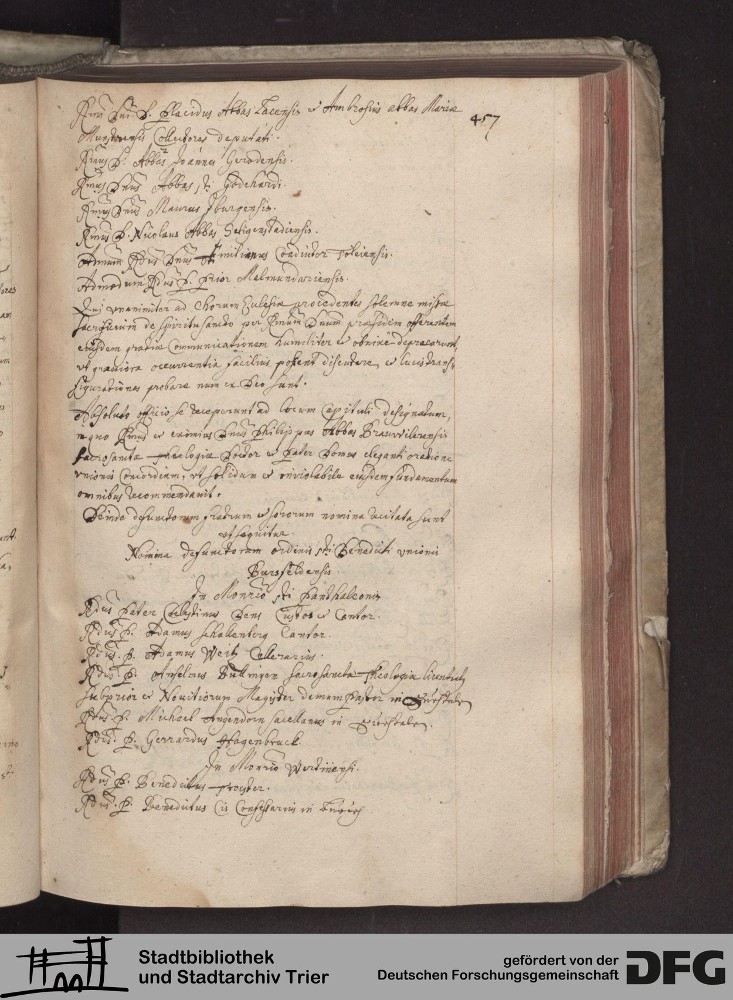 Rmi Dni D. Placidus Abbas Lacensis et Ambrosius abbas Mariæ
457
Munsterensis Collectores deputati.
Rmus D. Abbas Joannes Gerodensis.
Rmus Dnus Abbas sti Godehardi.
Rmus Dnus Maurus Iburgensis.
Rmus D. Nicolaus Abbas Seligenstadiensis.
Admum Rdus Dnus Coadiutor
Admodum Rdus P. Prior Malmundariensis.
Qui unanimiter ad Chorum Ecclesiæ procedentes solemne missæ
sacrificium de spiritu sancto per Rmum Dnum præsidem offerentem
eiusdem gratiæ Communicationem humiliter et obnixe deprecarunt,
ut graviora occurrentia facilius possent discutere, et lucis trans-
figurationes probare num ex Deo sunt.
Absoluto officio se receperunt ad locum Capituli designatum,
in quo Rmus et eximius Dnus Philippus Abbas Brauwilerensis
sacrosanctæ theologiæ Doctor et Pater Domus eleganti oratione
unionis Concordiam, ut solidum et inviolabile eiusdem fundamentum
omnibus recommendavit.
Deinde defunctorum fratrum et sororum nomina recitata sunt
ut sequitur
Nomina defunctorum ordinis sti Benedicti unionis
Bursfeldensis.
In Monrio sti Panthaleonis
Rdus Pater Cælestinus Dens Custos et Cantor.
Rdus P. Adamus Schallenberg Cantor.
Rdus P. Adamus Weis Cellerarius.
Rdus P. Anselmus Duttingen sacrosanctæ theologiæ licentiat,
subprior et Novitiorum Magister demum Pastor in
Rdus P. Michael Angendorn sacellanus in
Rdus P. Gerrardus Hagenbruck
In Monrio Werthinensi.
Rdus P. Benedictus
Rdus P. Benedictus Confessarius in
Stadtbibliothek
und Stadtarchiv Trier
gefördert von der
Deutschen Forschungsgemeinschaft
DFG